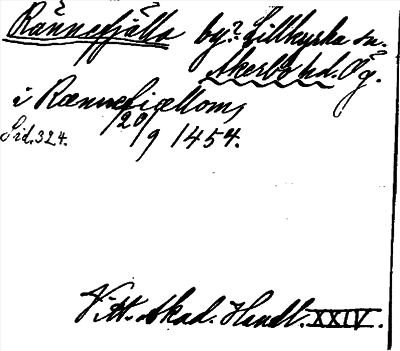 Rännefjälla by? Lillkyrka sn.
Åkerbo hd. Ög.
i Rænnefiællom,
20/9 1454.
Sid. 324.
Vitt. Akad. Handl. XXIV.